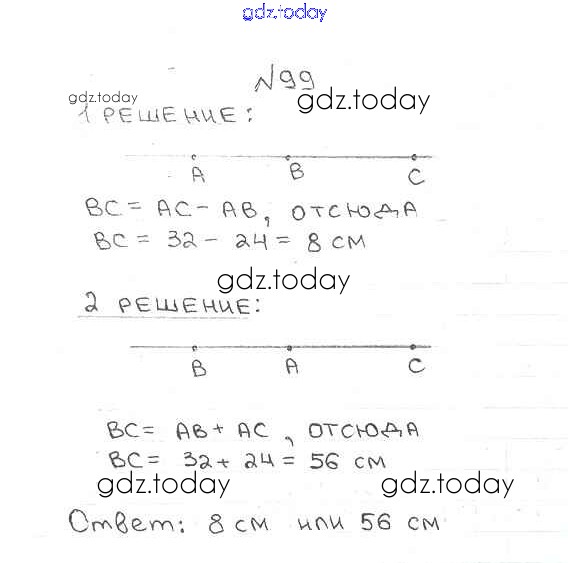 gdz.today
N99
gdz.today
gdz.today
1 РЕШЕНИЕ:
A B C
BC = AC - AB, ОТСЮДА
BC = 32 - 24 = 8 СМ
gdz.today
2 РЕШЕНИЕ:
B A C
BC = AB + AC, ОТСЮДА
BC = 32 + 24 = 56 СМ
gdz.today gdz.today
Ответ: 8 см или 56 см